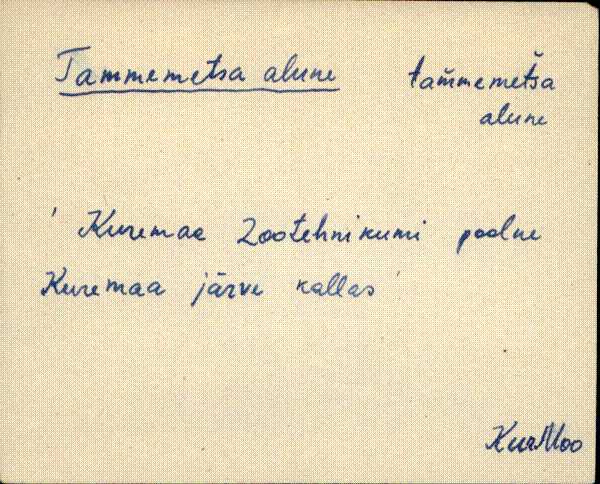 Tammemetsa alune
tam̆memet̆sa
alune
' Kuremaa Zootehnikumi poolne
Kuremaa järve kallas '
KurMoo